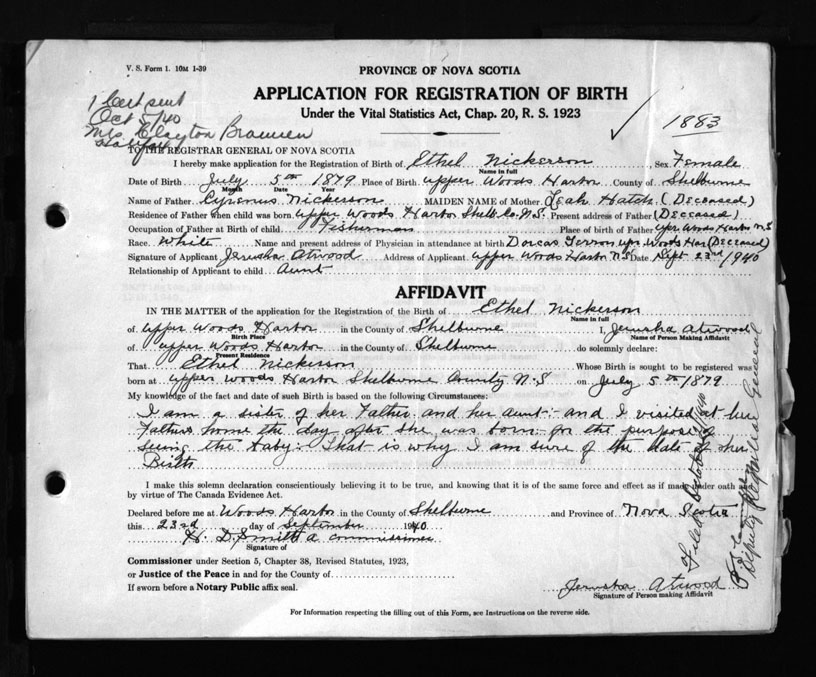 V. S. Form 1. 10M 1-39
PROVINCE OF NOVA SCOTIA
APPLICATION FOR REGISTRATION OF BIRTH
Under the Vital Statistics Act, Chap. 20, R. S. 1923
1 Cert sent
Oct 5/40
Mrs Clayton
Halifax
1883
TO THE REGISTRAR GENERAL OF NOVA SCOTIA
I hereby make application for the Registration of Birth of Ethel Nickerson Sex Female
Name in full
Date of Birth July 5th 1879 Place of Birth upper Woods Harbor County of Shelburne
Month Date Year
Name of Father Nickerson MAIDEN NAME of Mother Leah Hatch (Deceased)
Residence of Father when child was born upper Woods Harbor Shelb. Co. N.S. Present address of Father (Deceased)
Occupation of Father at Birth of child Fisherman Place of birth of Father upr. Woods Harbor N.S
Race White Name and present address of Physician in attendance at birth Dorcas upr. Woods Har (Deceased)
Signature of Applicant Jerusha Atwood Address of Applicant upper Woods Harbor N.S Date Sept 23rd 1940
Relationship of Applicant to child Aunt
AFFIDAVIT
IN THE MATTER of the application for the Registration of the Birth of Ethel Nickerson
Name in full
of upper Woods Harbor in the County of Shelburne I, Jerusha Atwood
Birth Place Name of Person Making Affidavit
of upper Woods Harbor in the County of Shelburne do solemnly declare:
Present Residence
That Ethel Nickerson Whose Birth is sought to be registered was
born at upper Woods Harbor Shelburne County N.S on July 5th 1879
My knowledge of the fact and date of such Birth is based on the following Circumstances:
I am a sister of her Father and her aunt- and I visited at her
Fathers home the day after she was born for the purpose of
seeing the baby. That is why I am sure of the date of her
Birth
I make this solemn declaration conscientiously believing it to be true, and knowing that it is of the same force and effect as if made under oath
by virtue of The Canada Evidence Act.
Declared before me at Woods Harbor in the County of Shelburne and Province of Nova Scotia
this 23rd day of September 1940
H. D. Smith a commissioner
Signature of
Commissioner under Section 5, Chapter 38, Revised Statutes, 1923,
or Justice of the Peace in and for the County of
If sworn before a Notary Public affix seal.
Jerusha Atwood
Signature of Person making Affidavit
For Information respecting the filling out of this Form, see Instructions on the reverse side.
Filed October
Deputy Registrar General